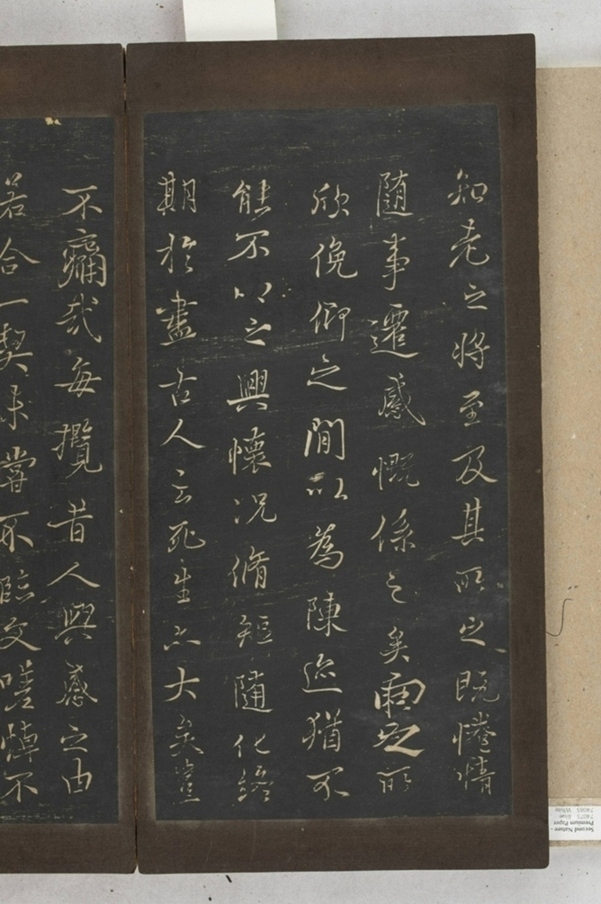 知老之將至及其所之既惓情
隨事遷感慨係之矣向之所
欣俛仰之間以為陳迹猶不
能不以之興懷況脩短隨化終
期於盡古人云死生亦大矣豈
不痛哉每攬昔人興感之由
若合一契未嘗不臨文嗟悼不
Second Nature -
Premium Paper